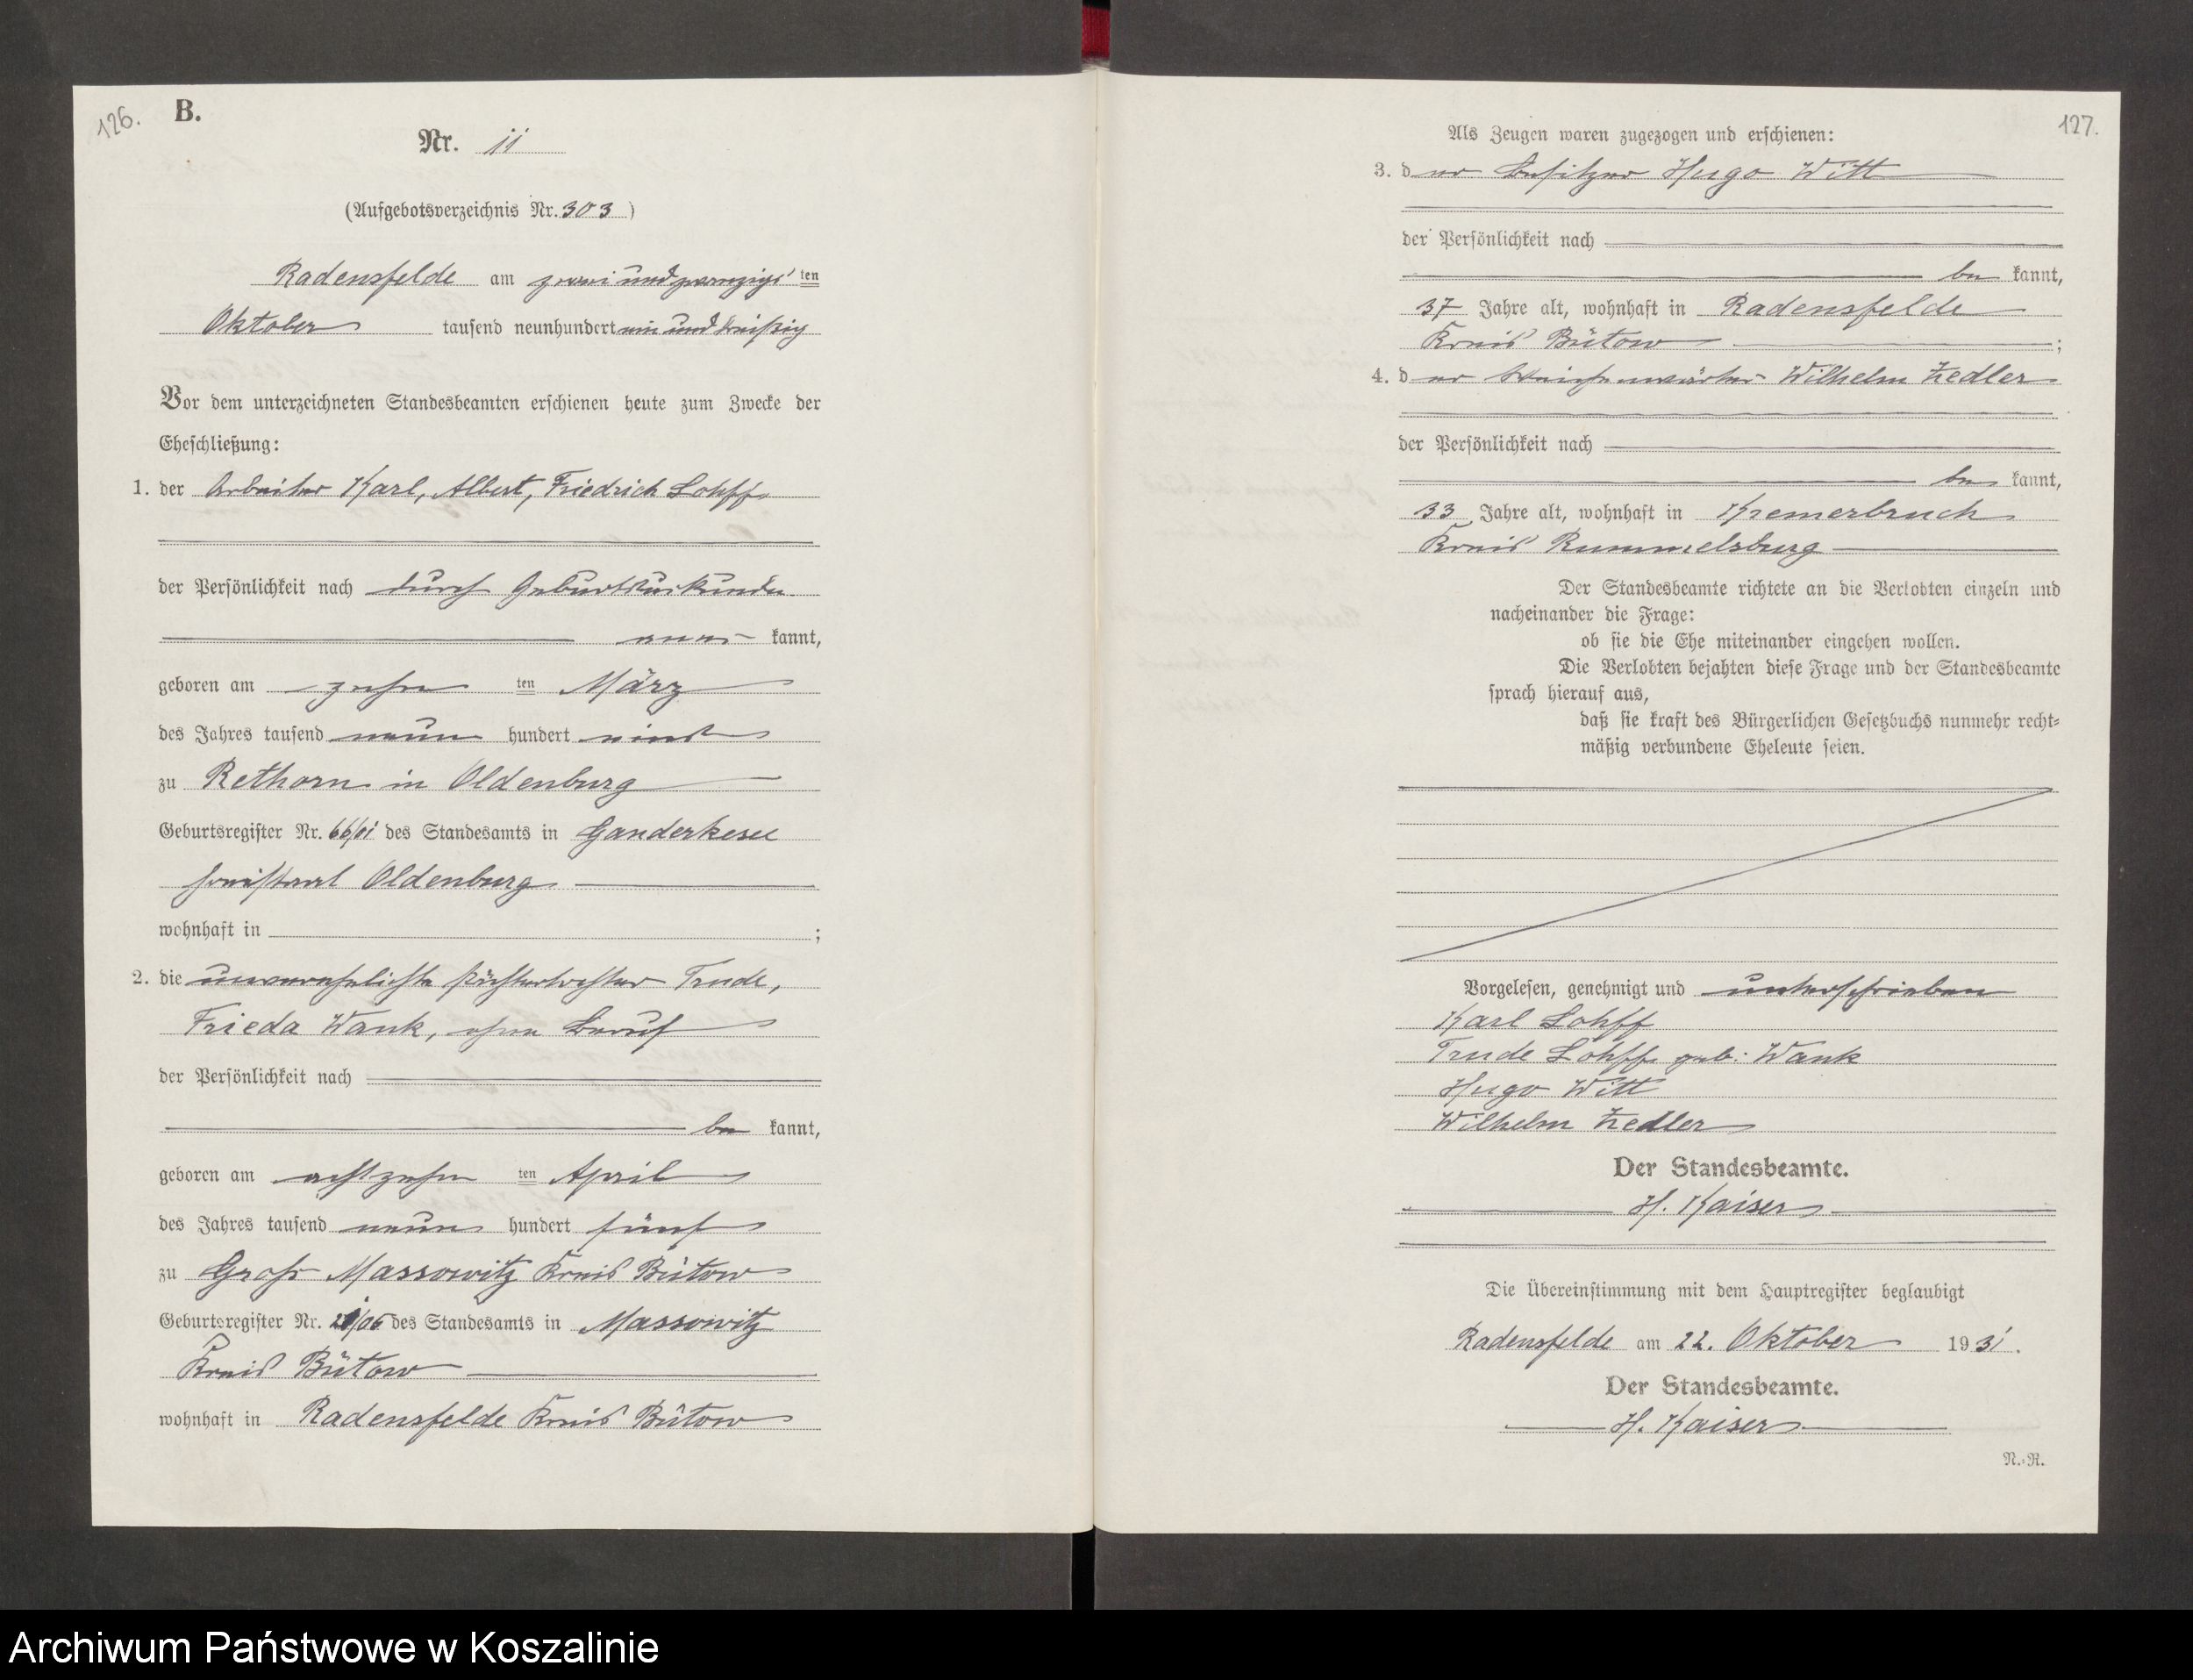 126.
B.
Nr. 11
(Aufgebotsverzeichnis Nr. 303)
Radensfelde am zwei und zwanzigs ten
Oktober tausend neunhundert ein und dreißig
Vor dem unterzeichneten Standesbeamten erschienen heute zum Zwecke der
Eheschließung:
1. der Arbeiter Karl, Albert, Friedrich Lohff
der Persönlichkeit nach durch Geburtsurkunde
aner kannt,
geboren am zehn ten März
des Jahres tausend neun hundert eins
zu Rethorn in Oldenburg
Geburtsregister Nr. 66/01 des Standesamts in Ganderkesee
Freistaat Oldenburg
wohnhaft in ;
2. die unverehelichte Trude,
Frieda Wank, ohne Beruf
der Persönlichkeit nach
be kannt,
geboren am achtzehn ten April
des Jahres tausend neun hundert fünf
zu Groß Massowitz Kreis Bütow
Geburtsregister Nr. des Standesamts in Massowitz
Kreis Bütow
wohnhaft in Radensfelde Kreis Bütow
127.
Als Zeugen waren zugezogen und erschienen:
3. d er Besitzer Hugo Witt
der Persönlichkeit nach
be kannt,
37 Jahre alt, wohnhaft in Radensfelde
Kreis Bütow ;
4. d er Wilhelm Zedler
der Persönlichkeit nach
be kannt,
33 Jahre alt, wohnhaft in Kremerbruch
Kreis Rummelsburg
Der Standesbeamte richtete an die Verlobten einzeln und
nacheinander die Frage:
ob sie die Ehe miteinander eingehen wollen.
Die Verlobten bejahten diese Frage und der Standesbeamte
sprach hierauf aus,
daß sie kraft des Bürgerlichen Gesetzbuchs nunmehr recht-
mäßig verbundene Eheleute seien.
Vorgelesen, genehmigt und unterschrieben
Karl Lohff
Trude Lohff geb. Wank
Hugo Witt
Wilhelm Zedler
Der Standesbeamte.
H. Kaiser
Die Übereinstimmung mit dem Hauptregister beglaubigt
Radensfelde am 22. Oktober 1931.
Der Standesbeamte.
H. Kaiser
N.-R.
Archiwum Państwowe w Koszalinie